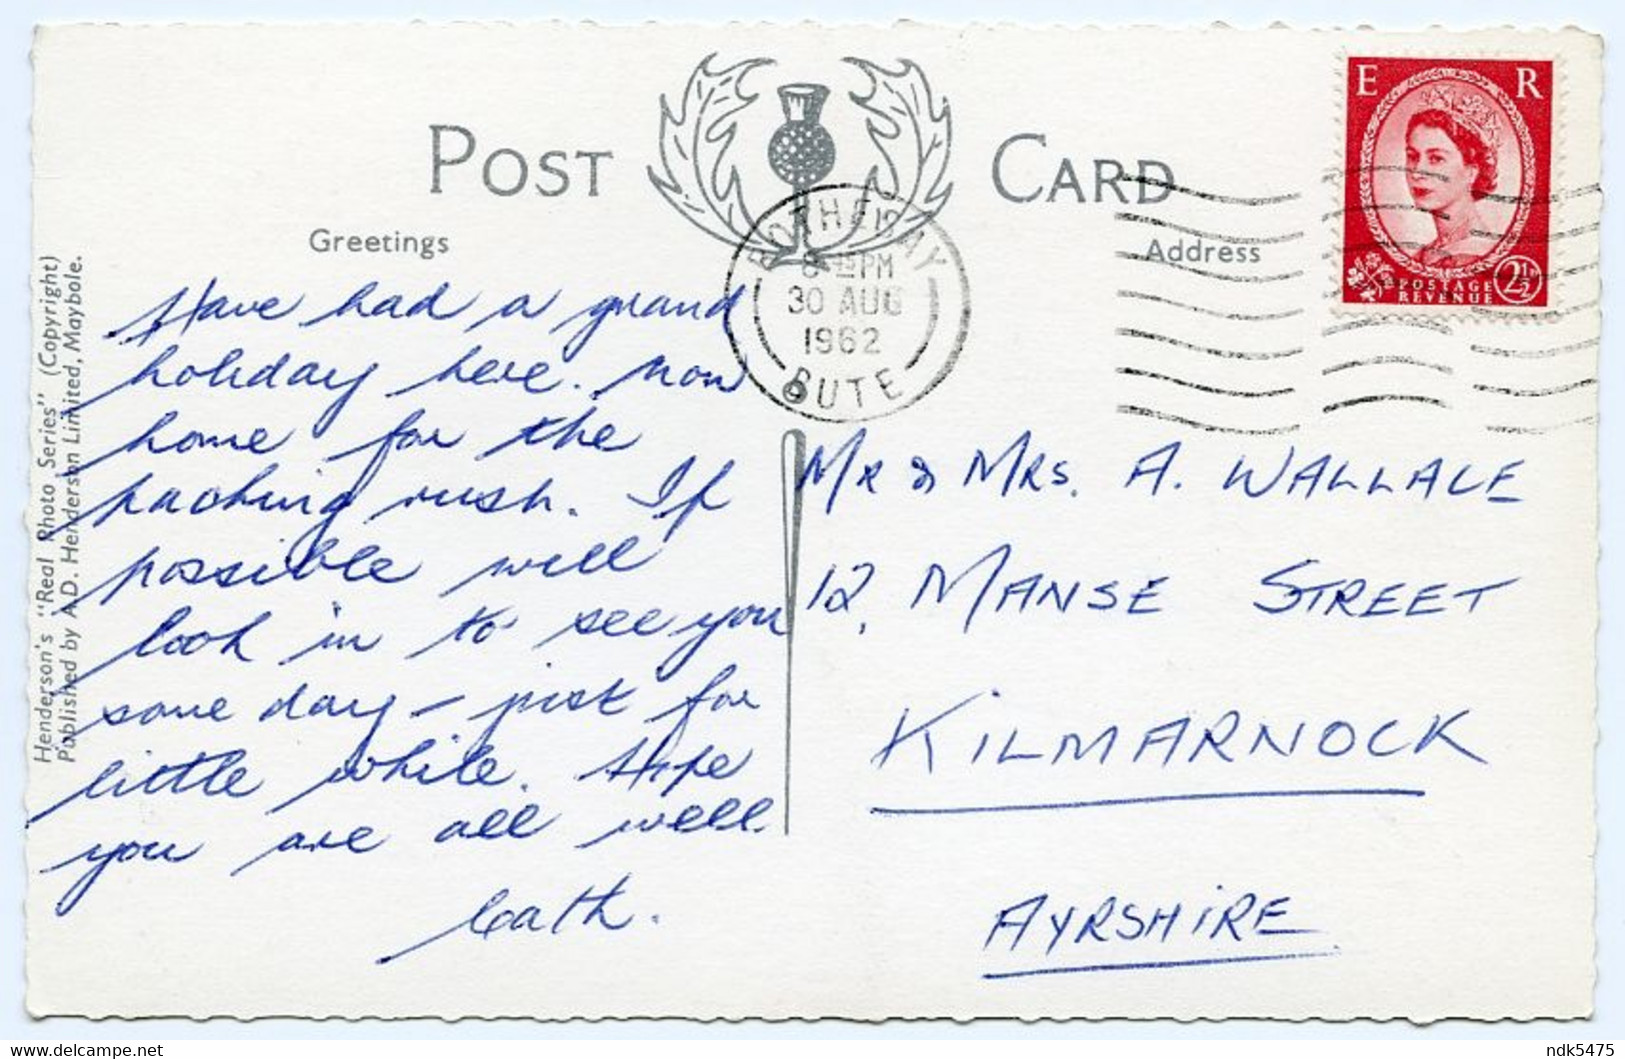 POST CARD
Greetings
Address
Henderson's "Real Photo Series" (Copyright)
Published by A.D. Henderson Limited, Maybole.
E R
POSTAGE
REVENUE
2½
ROTHESAY
8 45 PM
30 AUG
1962
BUTE
Have had a grand
holiday here. Now
home for the
packing rush. If
possible will
look in to see you
some day – just for
little while. Hope
you are all well.
Cath.
MR & MRS. A. WALLACE
12, MANSE STREET
KILMARNOCK
AYRSHIRE
ndk5475